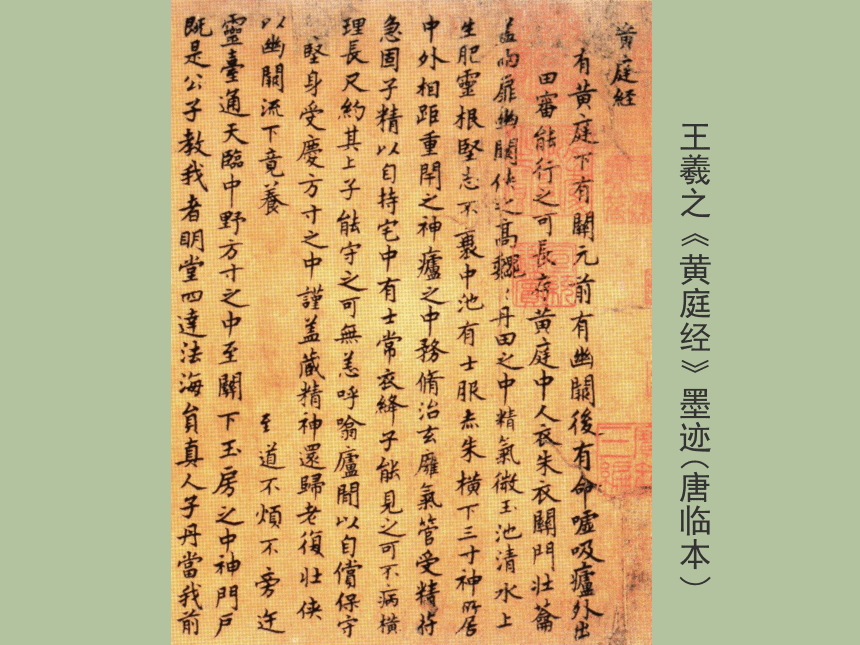 王羲之《黄庭经》墨迹（唐临本）
黄庭経
有黄庭下有關元前有幽闕後有命噓吸廬外出
田審能行之可長存黄庭中人衣朱衣關門壯籥
蓋兩扉幽闕俠之高巍:丹田之中精氣微玉池清水上
生肥靈根堅志不衰中池有士服赤朱横下三寸神所居
中外相距重閇之神廬之中務脩治玄廱氣管受精符
急固子精以自持宅中有士常衣絳子能見之可不病横
理長尺約其上子能守之可無恙呼噏廬間以自償保守
堅身受慶方寸之中謹蓋藏精神還歸老復壯俠
以幽闕流下竟養 至道不煩不旁迕
靈臺通天臨中野方寸之中至關下玉房之中神門戶
既是公子教我者明堂四達法海員真人子丹當我前